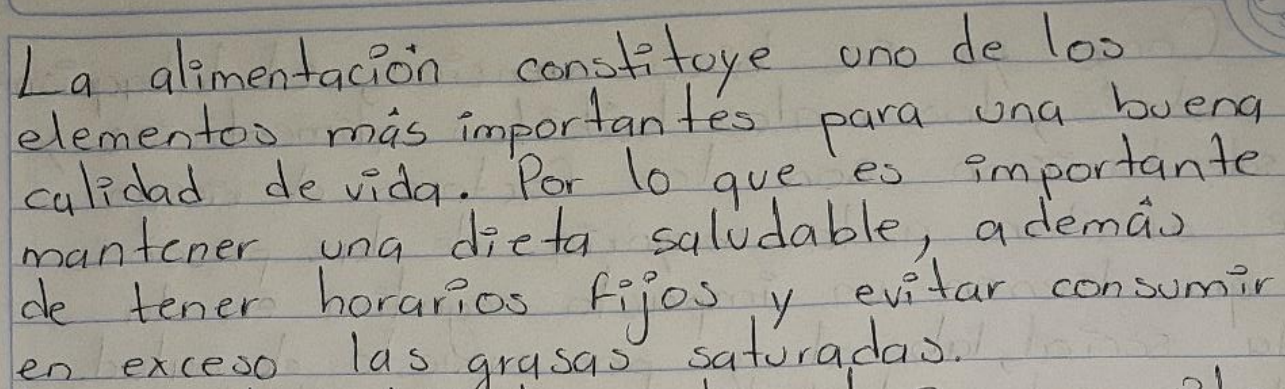 La alimentación constituye uno de los
elementos más importantes para una buena
calidad de vida. Por lo que es importante
mantener una dieta saludable, además
de tener horarios fijos y evitar consumir
en exceso las grasas saturadas.